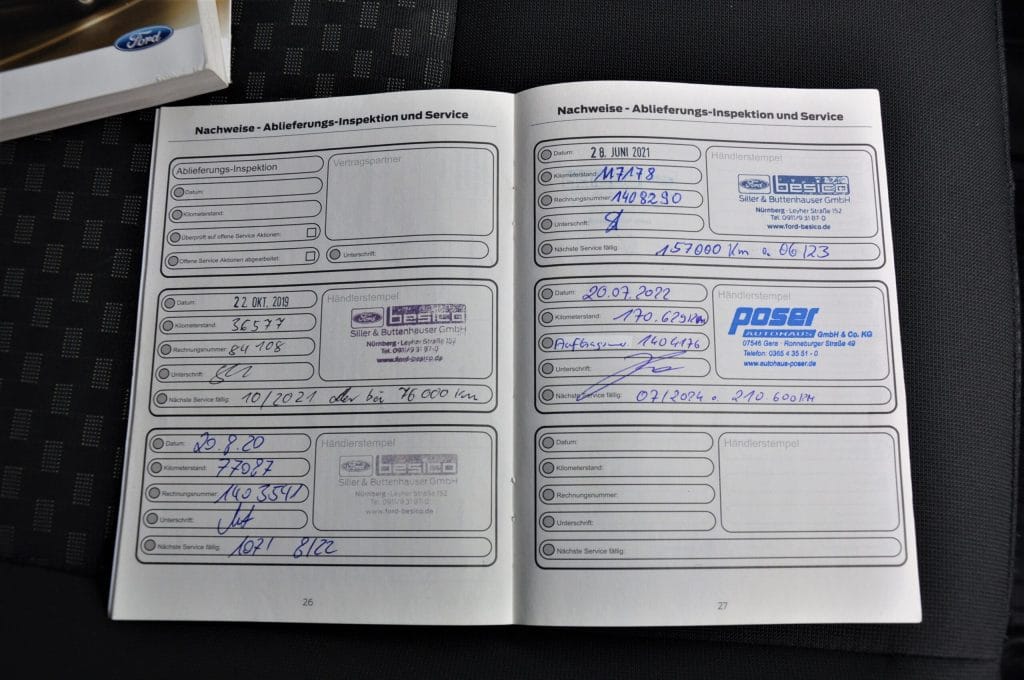 Ford
Nachweise - Ablieferungs-Inspektion und Service
Ablieferungs-Inspektion
Vertragspartner
Datum:
Kilometerstand:
Überprüft auf offene Service Aktionen:
Offene Service Aktionen abgearbeitet:
Unterschrift:
Datum: 22. OKT. 2019
Kilometerstand: 36577
Rechnungsnummer: 84108
Unterschrift:
Nächste Service fällig: 10/2021 oder bei 76000 km
Händlerstempel
Ford besico
Siller & Buttenhauser GmbH
Nürnberg - Leyher Straße 152
Tel. 0911/9 31 87-0
www.ford-besico.de
Datum: 20.8.20
Kilometerstand: 77087
Rechnungsnummer: 1403541
Unterschrift:
Nächste Service fällig: 107/ 8/22
Händlerstempel
Ford besico
Siller & Buttenhauser GmbH
Nürnberg - Leyher Straße 152
Tel. 0911/9 31 87-0
www.ford-besico.de
26
Nachweise - Ablieferungs-Inspektion und Service
Datum: 28. JUNI 2021
Kilometerstand: 117178
Rechnungsnummer: 1408290
Unterschrift:
Nächste Service fällig: 157000 km o. 06/23
Händlerstempel
Ford besico
Siller & Buttenhauser GmbH
Nürnberg - Leyher Straße 152
Tel. 0911/9 31 87-0
www.ford-besico.de
Datum: 20.07.2022
Kilometerstand: 170.629km
1404176
Unterschrift:
Nächste Service fällig: 07/2024 o. 210.600km
Händlerstempel
poser
AUTOHAUS GmbH & Co. KG
07546 Gera · Ronneburger Straße 69
Telefon: 0365 4 35 51 - 0
www.autohaus-poser.de
Datum:
Kilometerstand:
Rechnungsnummer:
Unterschrift:
Nächste Service fällig:
Händlerstempel
27